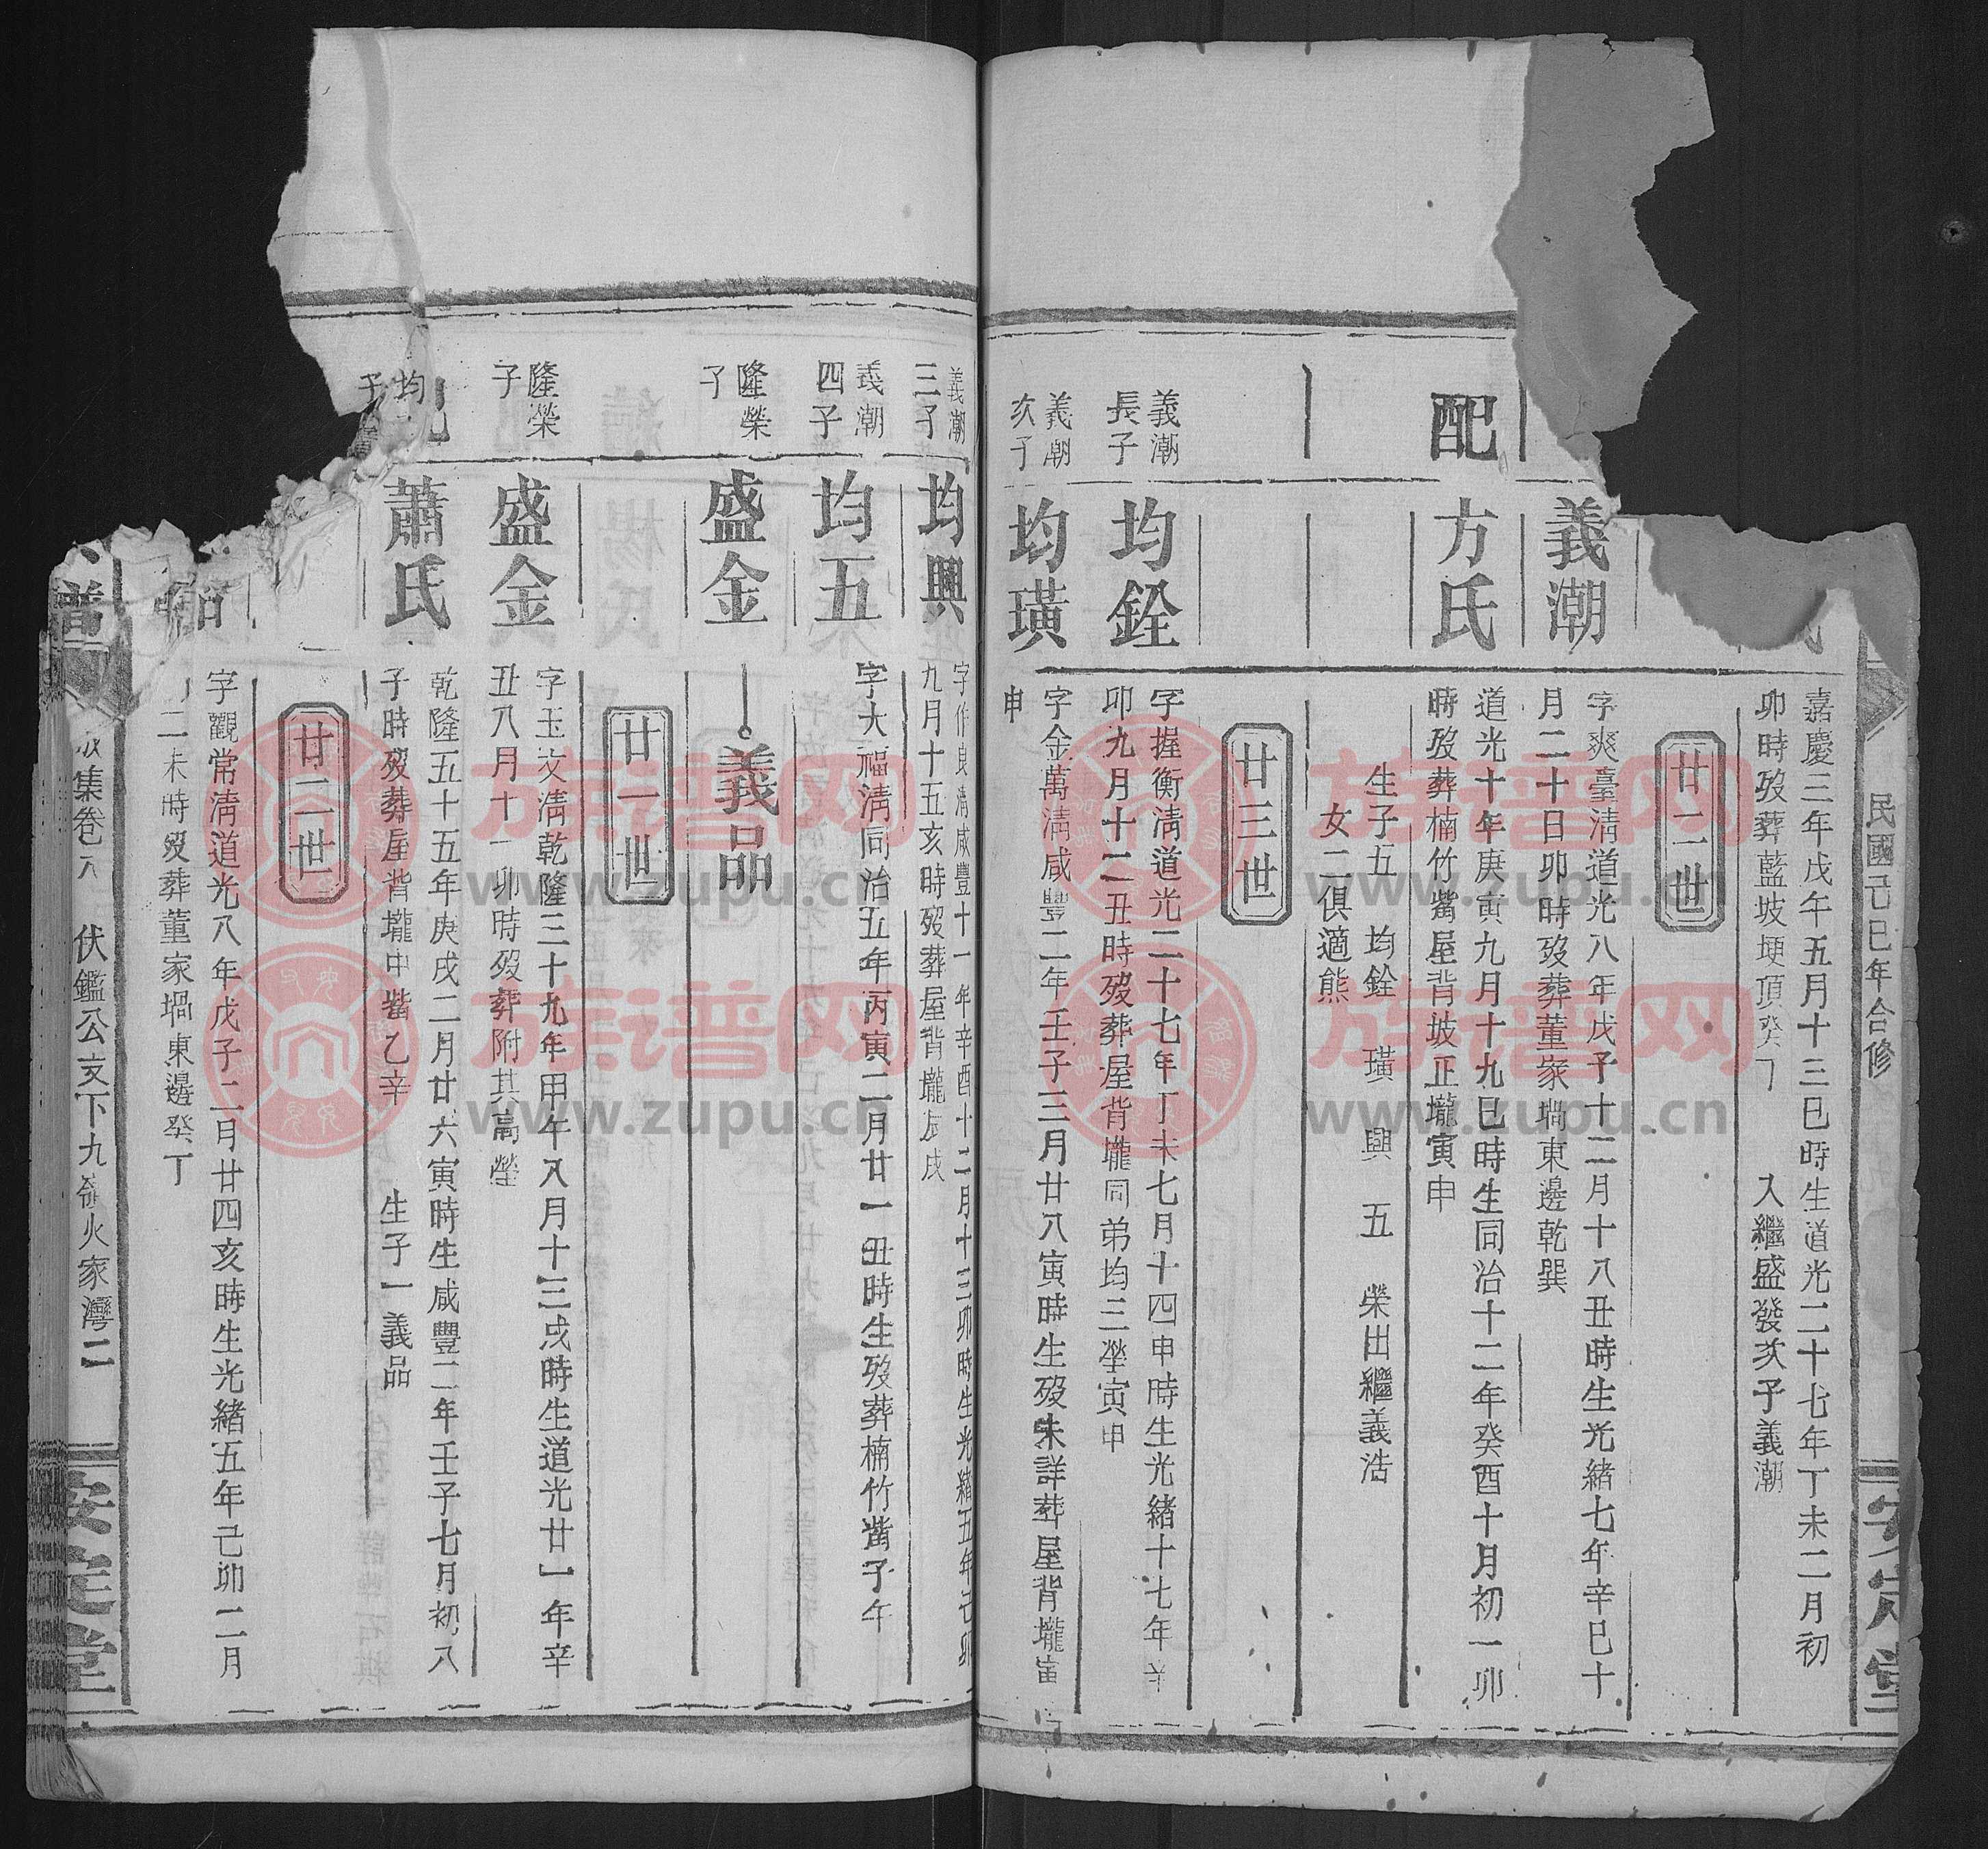 民國己巳年合修
安定堂
嘉慶三年戊午五月十三巳時生道光二十七年丁未二月初
卯時歿葬藍坡埂頂癸丁 入繼盛發次子義潮
廿二世
義潮
字爽臺淸道光八年戊子十二月十八丑時生光緒七年辛巳十
月二十日卯時歿葬董家堝東邊乾巽
配
方氏
道光十年庚寅九月十九巳時生同治十二年癸酉十月初一卯
時歿葬楠竹嘴屋背坡正壠寅申
生子五 均銓 璜 興 五 榮出繼義浩
女二俱適熊
廿三世
義潮
長子
均銓
字握衡淸道光二十七年丁未七月十四申時生光緒十七年辛
卯九月十二丑時歿葬屋背壠同弟均三塋寅申
義潮
次子
均璜
字金萬淸咸豐二年壬子三月廿八寅時生歿未詳葬屋背壠寅
申
義潮
三子
均興
字作良淸咸豐十一年辛酉十二月十三卯時生光緒五年己卯
九月十五亥時歿葬屋背壠辰戌
義潮
四子
均五
字大福淸同治五年丙寅二月廿一丑時生歿葬楠竹嘴子午
隆榮
子
盛金
義品
廿一世
隆榮
子
盛金
字玉文淸乾隆三十九年甲午八月十三戌時生道光廿一年辛
丑八月十一卯時歿葬附其高塋
蕭氏
乾隆五十五年庚戌二月廿六寅時生咸豐二年壬子七月初八
子時歿葬屋背壠中嘴乙辛 生子一義品
廿二世
均
子
字觀常淸道光八年戊子二月廿四亥時生光緒五年己卯二月
二未時歿葬董家堝東邊癸丁
譜
集卷八 伏鑑公支下九嶺火家灣二
安定堂
族谱网
www.zupu.cn
族谱网
www.zupu.cn
族谱网
www.zupu.cn
族谱网
www.zupu.cn